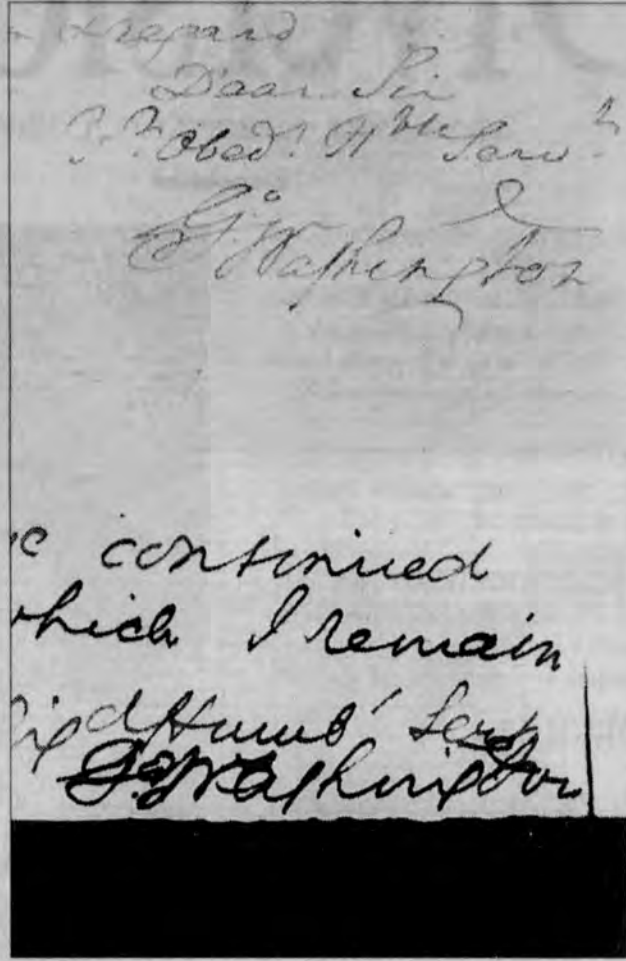 & regard
Dear Sir
Obedt Hble Servt
Go Washington
continued
which I remain
Humbe Serv
Go Washington